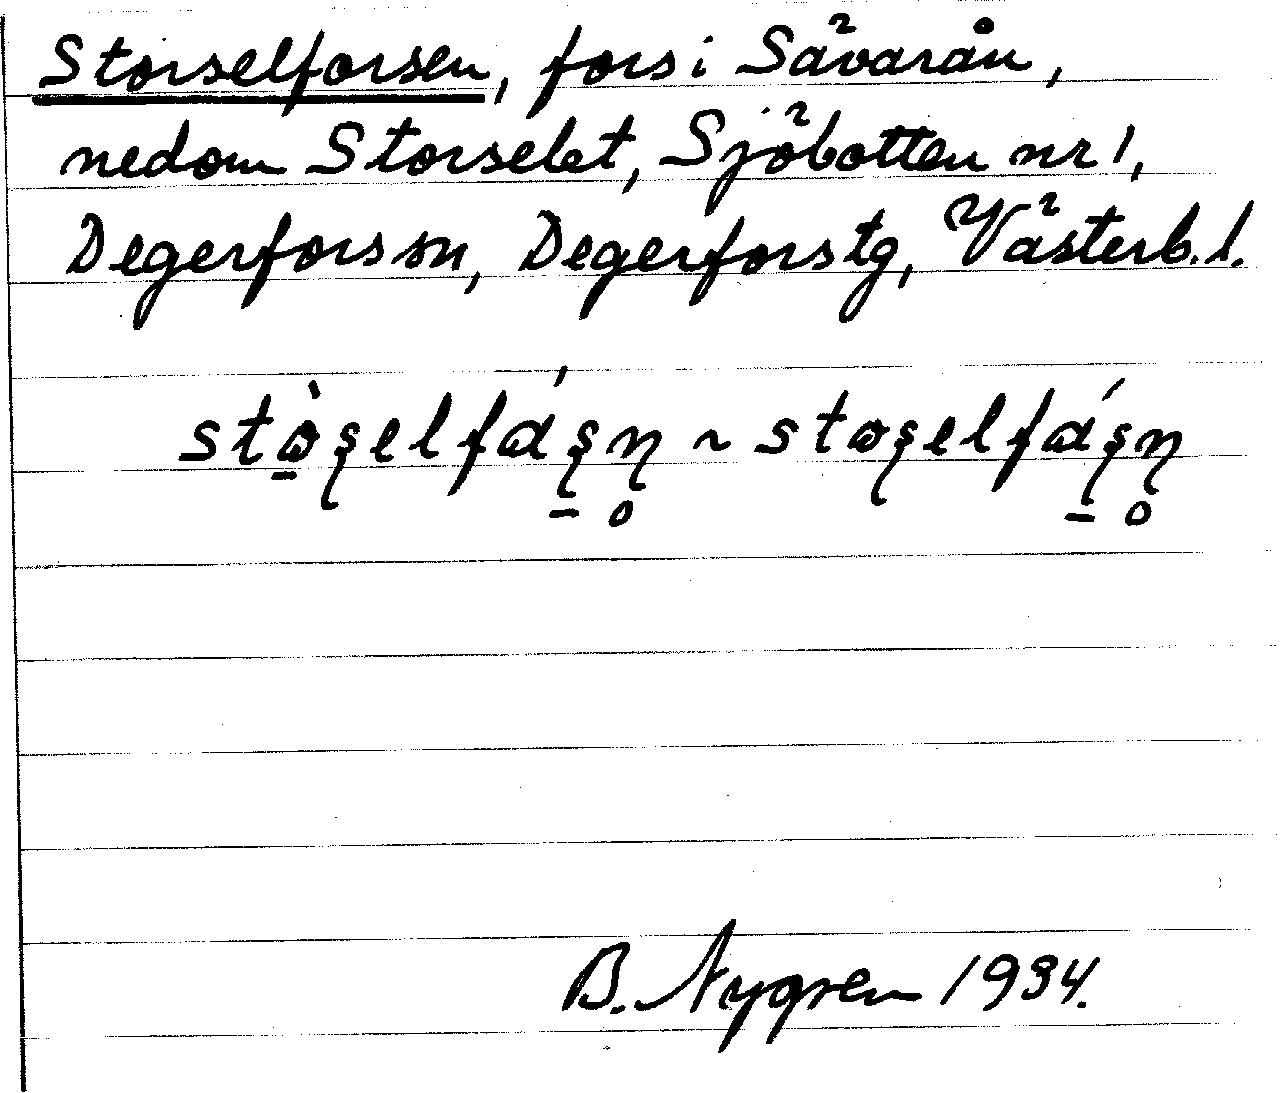 Storselforsen, fors i Sävarån,
nedom Storselet, Sjöbotten nr 1,
Degerfors sn, Degerfors tg, Västerb. l.
stò̱ʂelfáʂ̱ɳ̥ ~ stoʂelfáʂ̱ɳ̥
B. Nygren 1934.